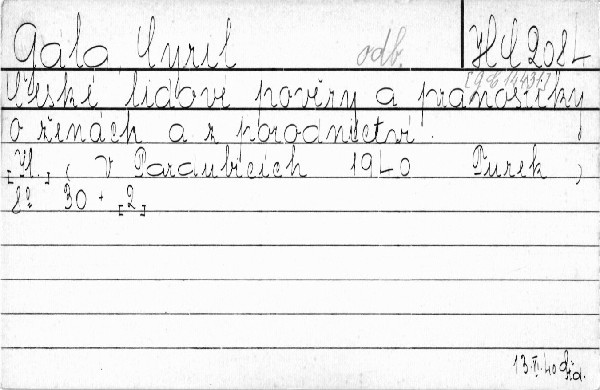 Gala, Cyril odb. HC 208L
České lidové pověry a pranostiky
o ženách a z porodnictví.
[II.] (V Pardubicích 1940 Purek)
8° 30 + [2]
13.VI.40